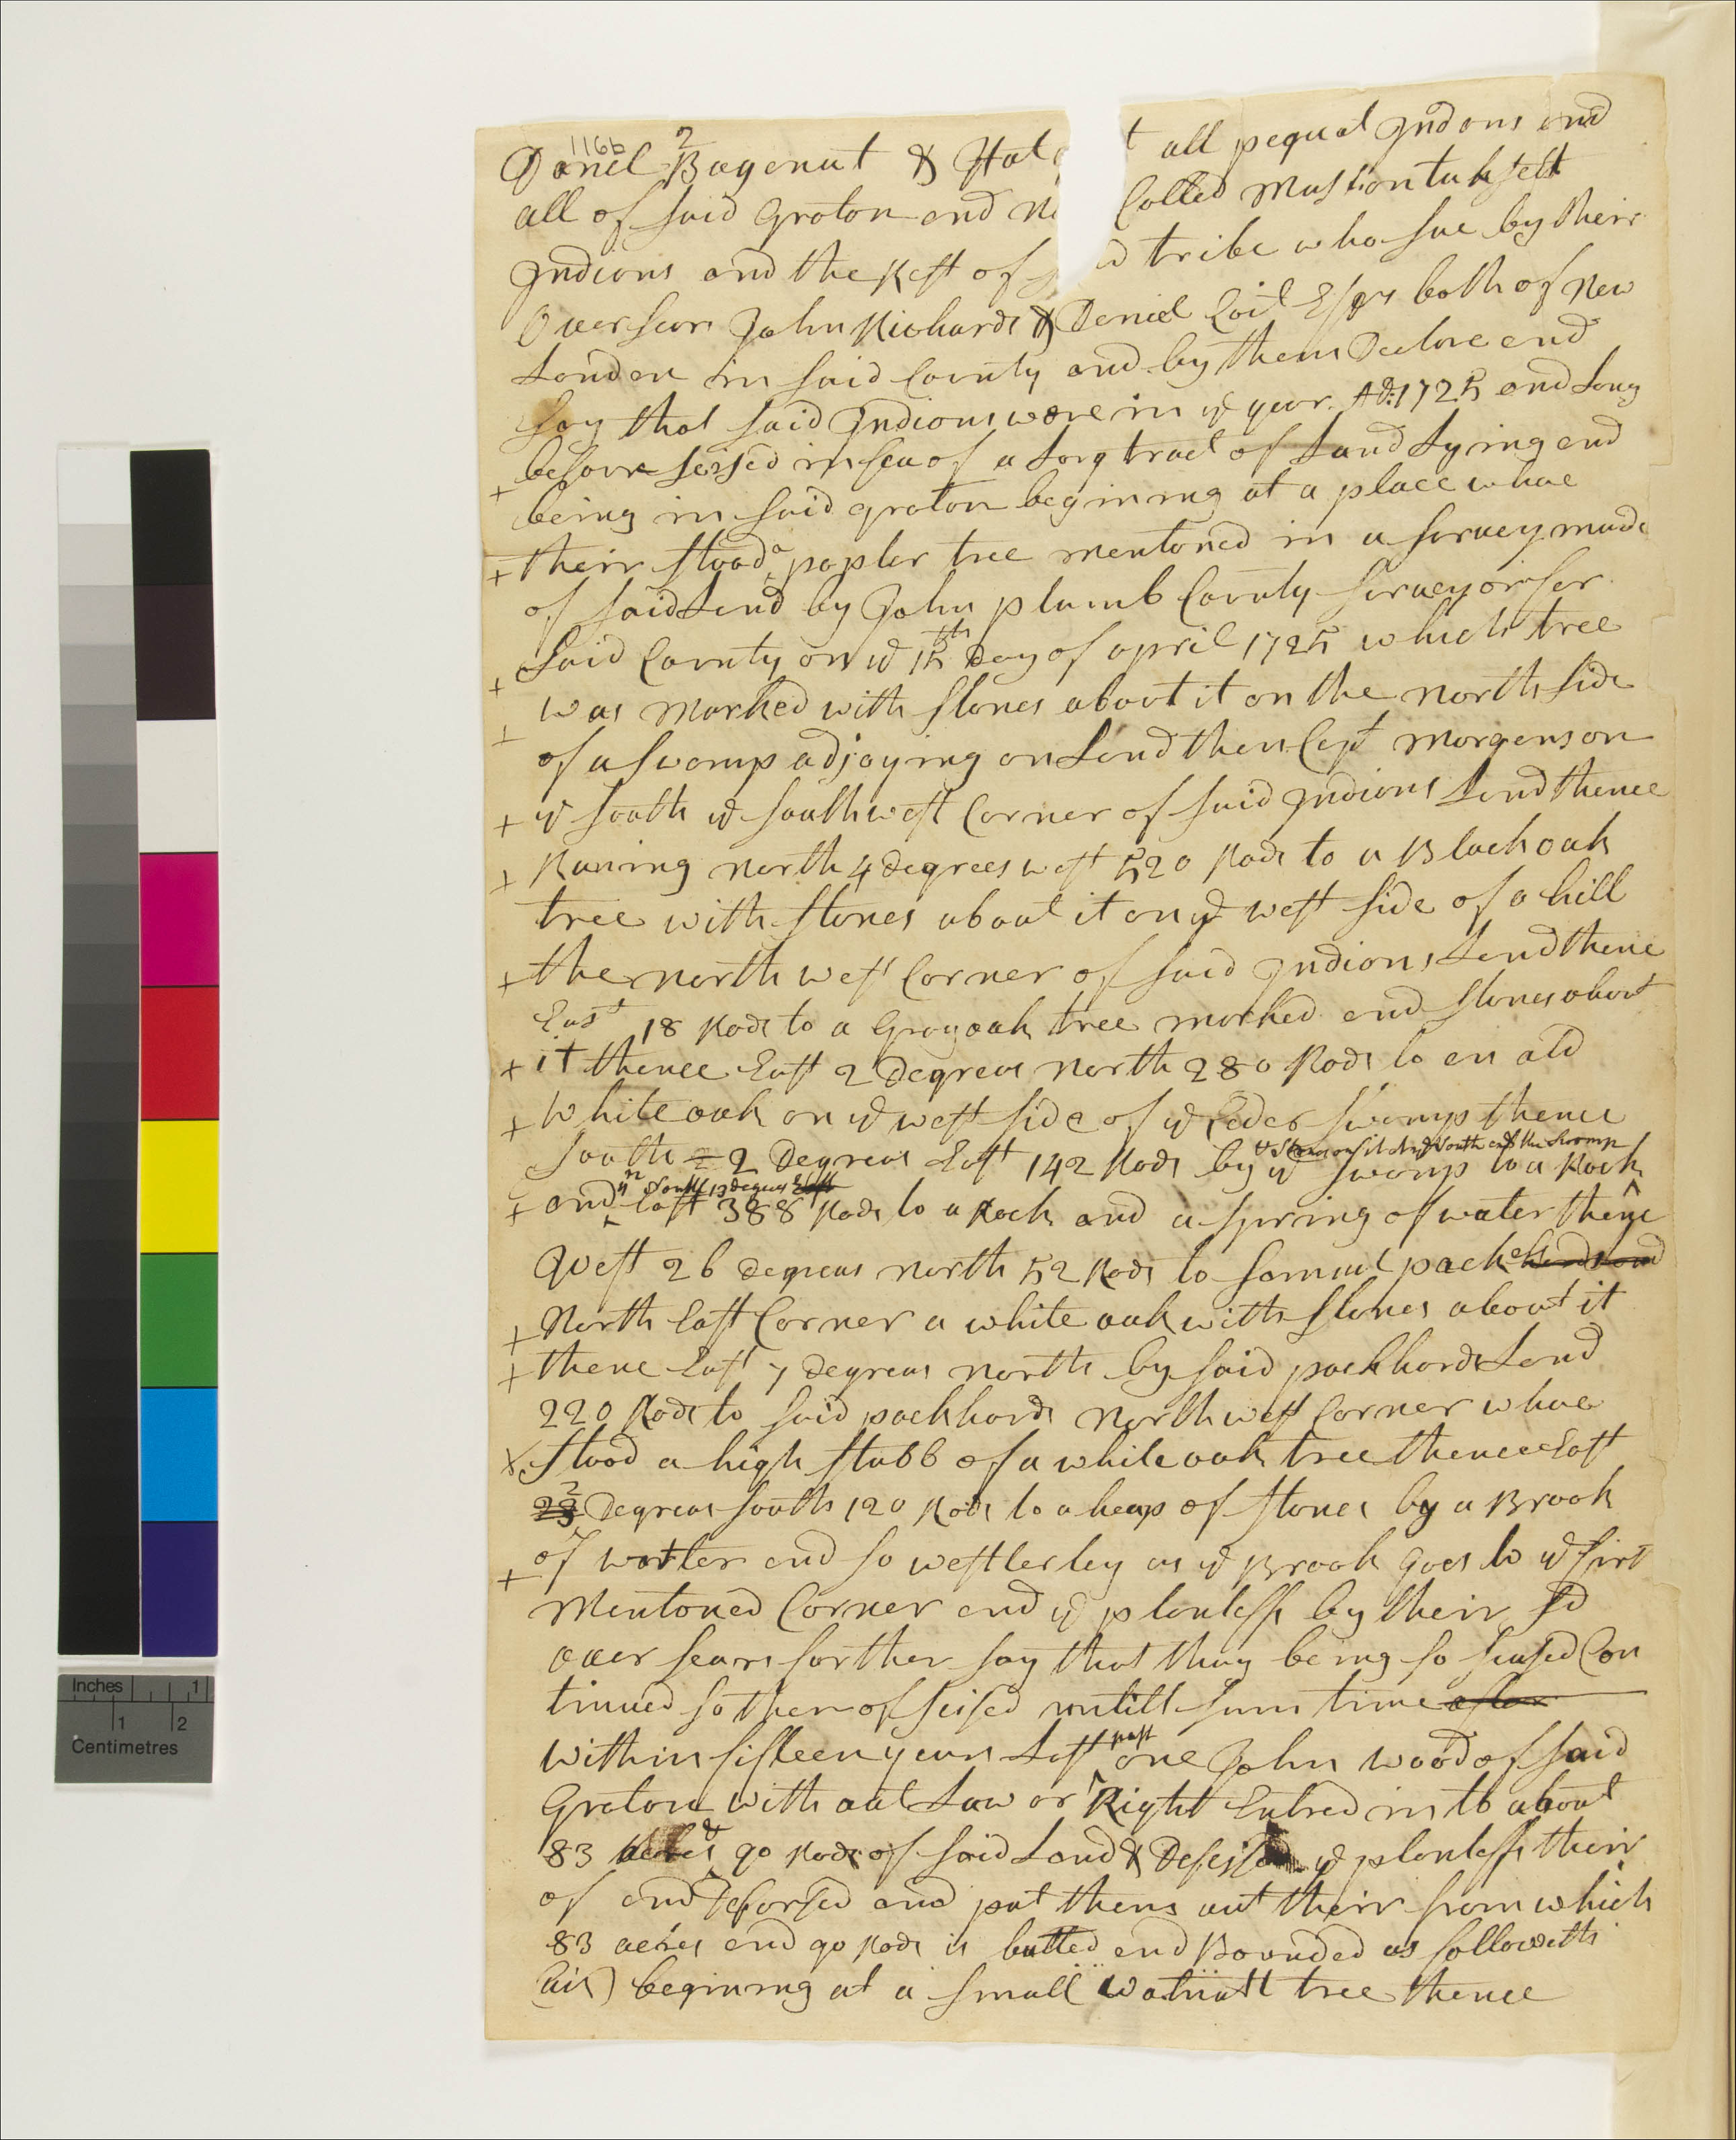 116b 2
Daniel Bagenut & Hal t all pequat Indions and
all of said Groton and Called Mushontuksett
Indions and the Rest of d tribe who sue by their
Overseers John Richards & Daniel Coit Esqrs both of New
London in said County and by them Declare and
say that said Indions were in ye year AD: 1725 and Long
before seised in fea of a Larg tract of Land Lying and
being in said groton begining at a place whare
their stood a popler tree mentoned in a survey made
of said Land by John plumb County surveyor for
said County on ye 15th Day of april 1725 which tree
was marked with stones about it on the north side
of a swomp adjoying on Land then Capt morgens on
ye south ye southwest Corner of said Indions Land thence
Runing north 4 degrees west 520 Rods to a Black oak
tree with stones about it on ye west side of a hill
the north west Corner of said Indions Land thence
East 18 Rods to a Gray oak tree marked and stones about
it thence East 2 degrees north 280 Rods to an old
white oak on ye west side of ye Ceder swomp thence
South 2 Degrees East 142 Rods by ye swomp to a Rock
& Stones on it at ye South end the swomp
and South 13 degrees East 388 Rods to a Rock and a spring of water thence
West 26 degrees north 52 Rods to Samuel pack
North East Corner a white oak with stones about it
thence East 7 degreas north by said packhards Land
220 Rods to said packhards North west Corner whare
stood a high stubb of a white oak tree thence East
2 Degreas south 120 Rods to a heap of stones by a Brook
of watter and so westlerley as ye Brook goes to ye first
mentoned Corner and ye plontefs by their sd
over sears forther say that thay being so seased Con
tinued so therof seised untill sum time after
within fifteen years Last past one John wood of said
Groton with out Law or Right Entred in to about
83 acres & 90 Rods of said Land & Deseised ye plontefs their
of and Deforsed and put them out their from which
83 acres and 90 Rods is butted and Bounded as followeth
(viz) begining at a small walnutt tree thence